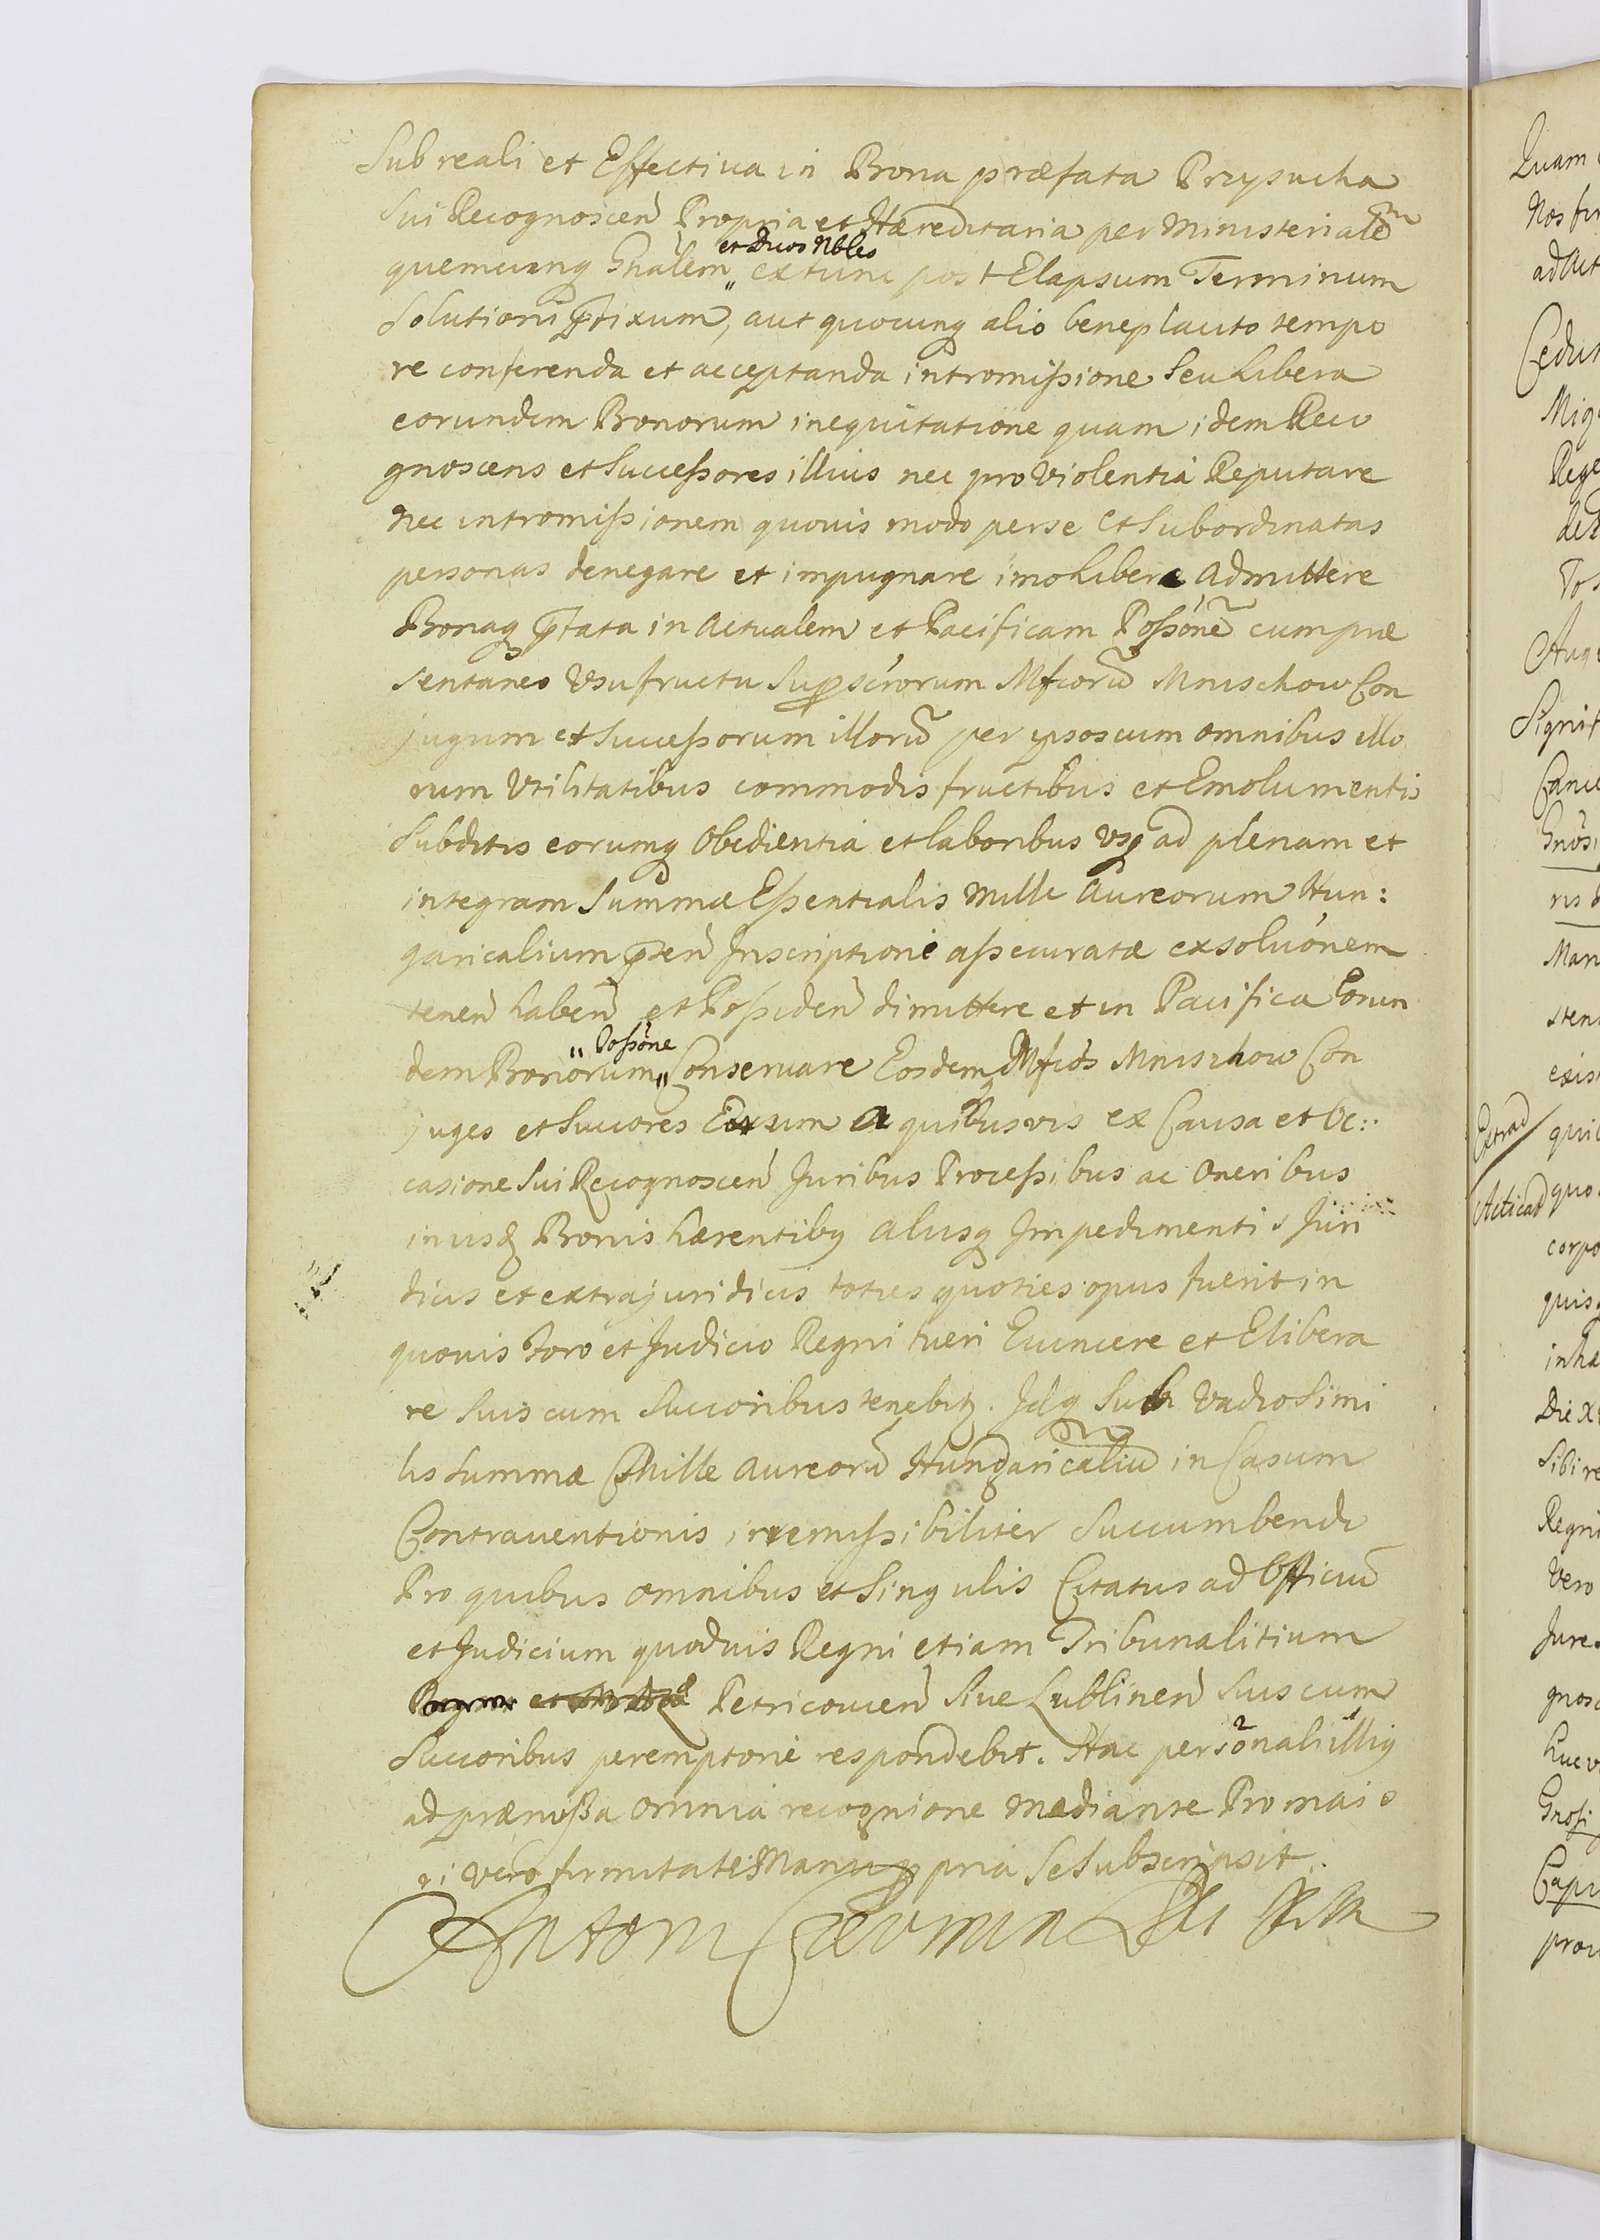 Sub reali et Effectiva in Bona præfata Przysucha
Sui Recognoscen̄ Propria et Hæreditaria per Ministerialē
et Duos Nbles
quemcunq Gnalem „ extunc post Elapsum Terminum
Solutioni p̄fixum, aut quocunq alio beneplacito tempo
re conferenda et acceptanda intromissione Seu Libera
eorundem Bonorum inequitatione quam idem Reco
gnoscens et Successores illius nec pro Violentia Reputare
nec intromissionem quovis modo per se et Subordinatas
personas denegare et impugnare imo Libere Admittere
Bonaq p̄fata in Actualem et Pacificam Possone̅ cum præ
sentaneo Usufructu Suprascrorum Mfcorū Mnischow Con
jugum et Successorum illorū per ipsos cum omnibus illo
rum Utilitatibus commodis fructibus et Emolumentis
Subditis eorumq Obedientia et laboribus usq ad plenam et
integram Summæ Essentialis Mille Aureorum Hun:
garicalium p̄sen̄ Inscriptione assecuratæ exsoluonem
tenen̄ haben̄ et Possiden̄ dimittere et in Pacifica Eorun
„ Possone
dem Bonorum „ Conservare Eosdem Mfcos Mnischow Con
juges et Succores Eorum a quibusvis ex Causa et Oc:
casione Sui Recognoscen̄ Juribus Processibus ac Oneribus
in iisd Bonis hærentibq aliisq Impedimentis Juri
dicis et extrajuridicis toties quoties opus fuerit in
quovis Foro et Judicio Regni tueri Evincere et Elibera
re suis cum Succoribus tenebit. Idq Sub Vadio Simi
lis Summæ Mille Aureorū Hungaricaliū in Casum
Contraventionis irremissibiliter Succumbendi
Pro quibus omnibus et Singulis Citatus ad Officiū
et Judicium quodvis Regni etiam Tribunalitium
Petricovien̄ Sive Lublinen̄ Suis cum
Succoribus peremptorie respondebit. Hac personali illiq
ad præmissa omnia recognione mediante Pro maio
ri vero firmitate Manu ppria Se Subscripsit.
Antoni Czermin